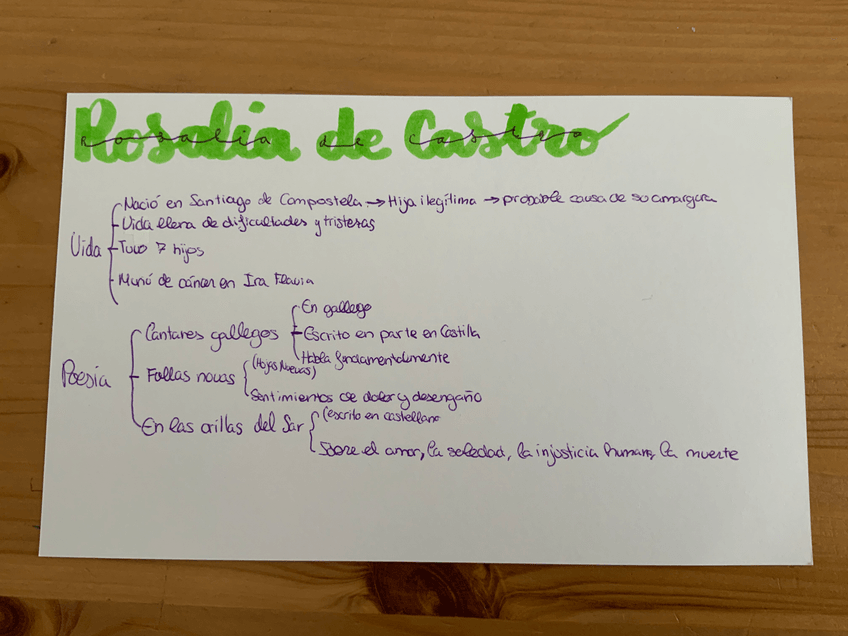 Rosalia de Castro
Rosalia de Castro
Vida
Nació en Santiago de Compostela → Hija ilegítima → probable causa de su amargura
Vida llena de dificultades y tristezas
Tuvo 7 hijos
Murió de cáncer en Ira Flavia
Poesía
Cantares gallegos
En gallego
Escrito en parte en Castilla
Habla fundamentalmente
Follas novas
(Hojas Nuevas)
Sentimientos de dolor y desengaño
En las orillas del Sar
(escrito en castellano
Sobre el amor, la soledad, la injusticia humana, la muerte